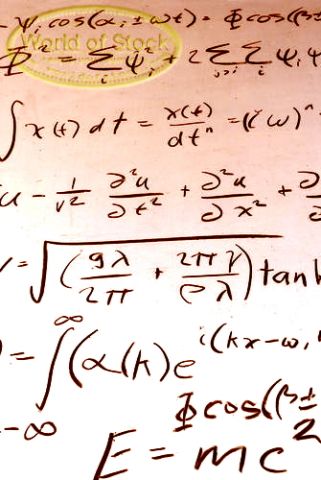 Ψᵢ cos(αᵢ ± ωt) = Φ cos(β±
World of Stock
Φ² = Σᵢ Ψᵢ² + 2 Σ_{j>i} Σᵢ Ψᵢ Ψ
∫ x(t) dt = x(t)/dtⁿ = (i ω)ⁿ
u - 1/v² ∂²u/∂t² + ∂²u/∂x² + ∂
= √((gλ/2π + 2πγ/ρλ) tanh
) = ∫_{-∞}^{∞} (α(k) e^{i(kx-ω
Φ cos((β±
E = mc²